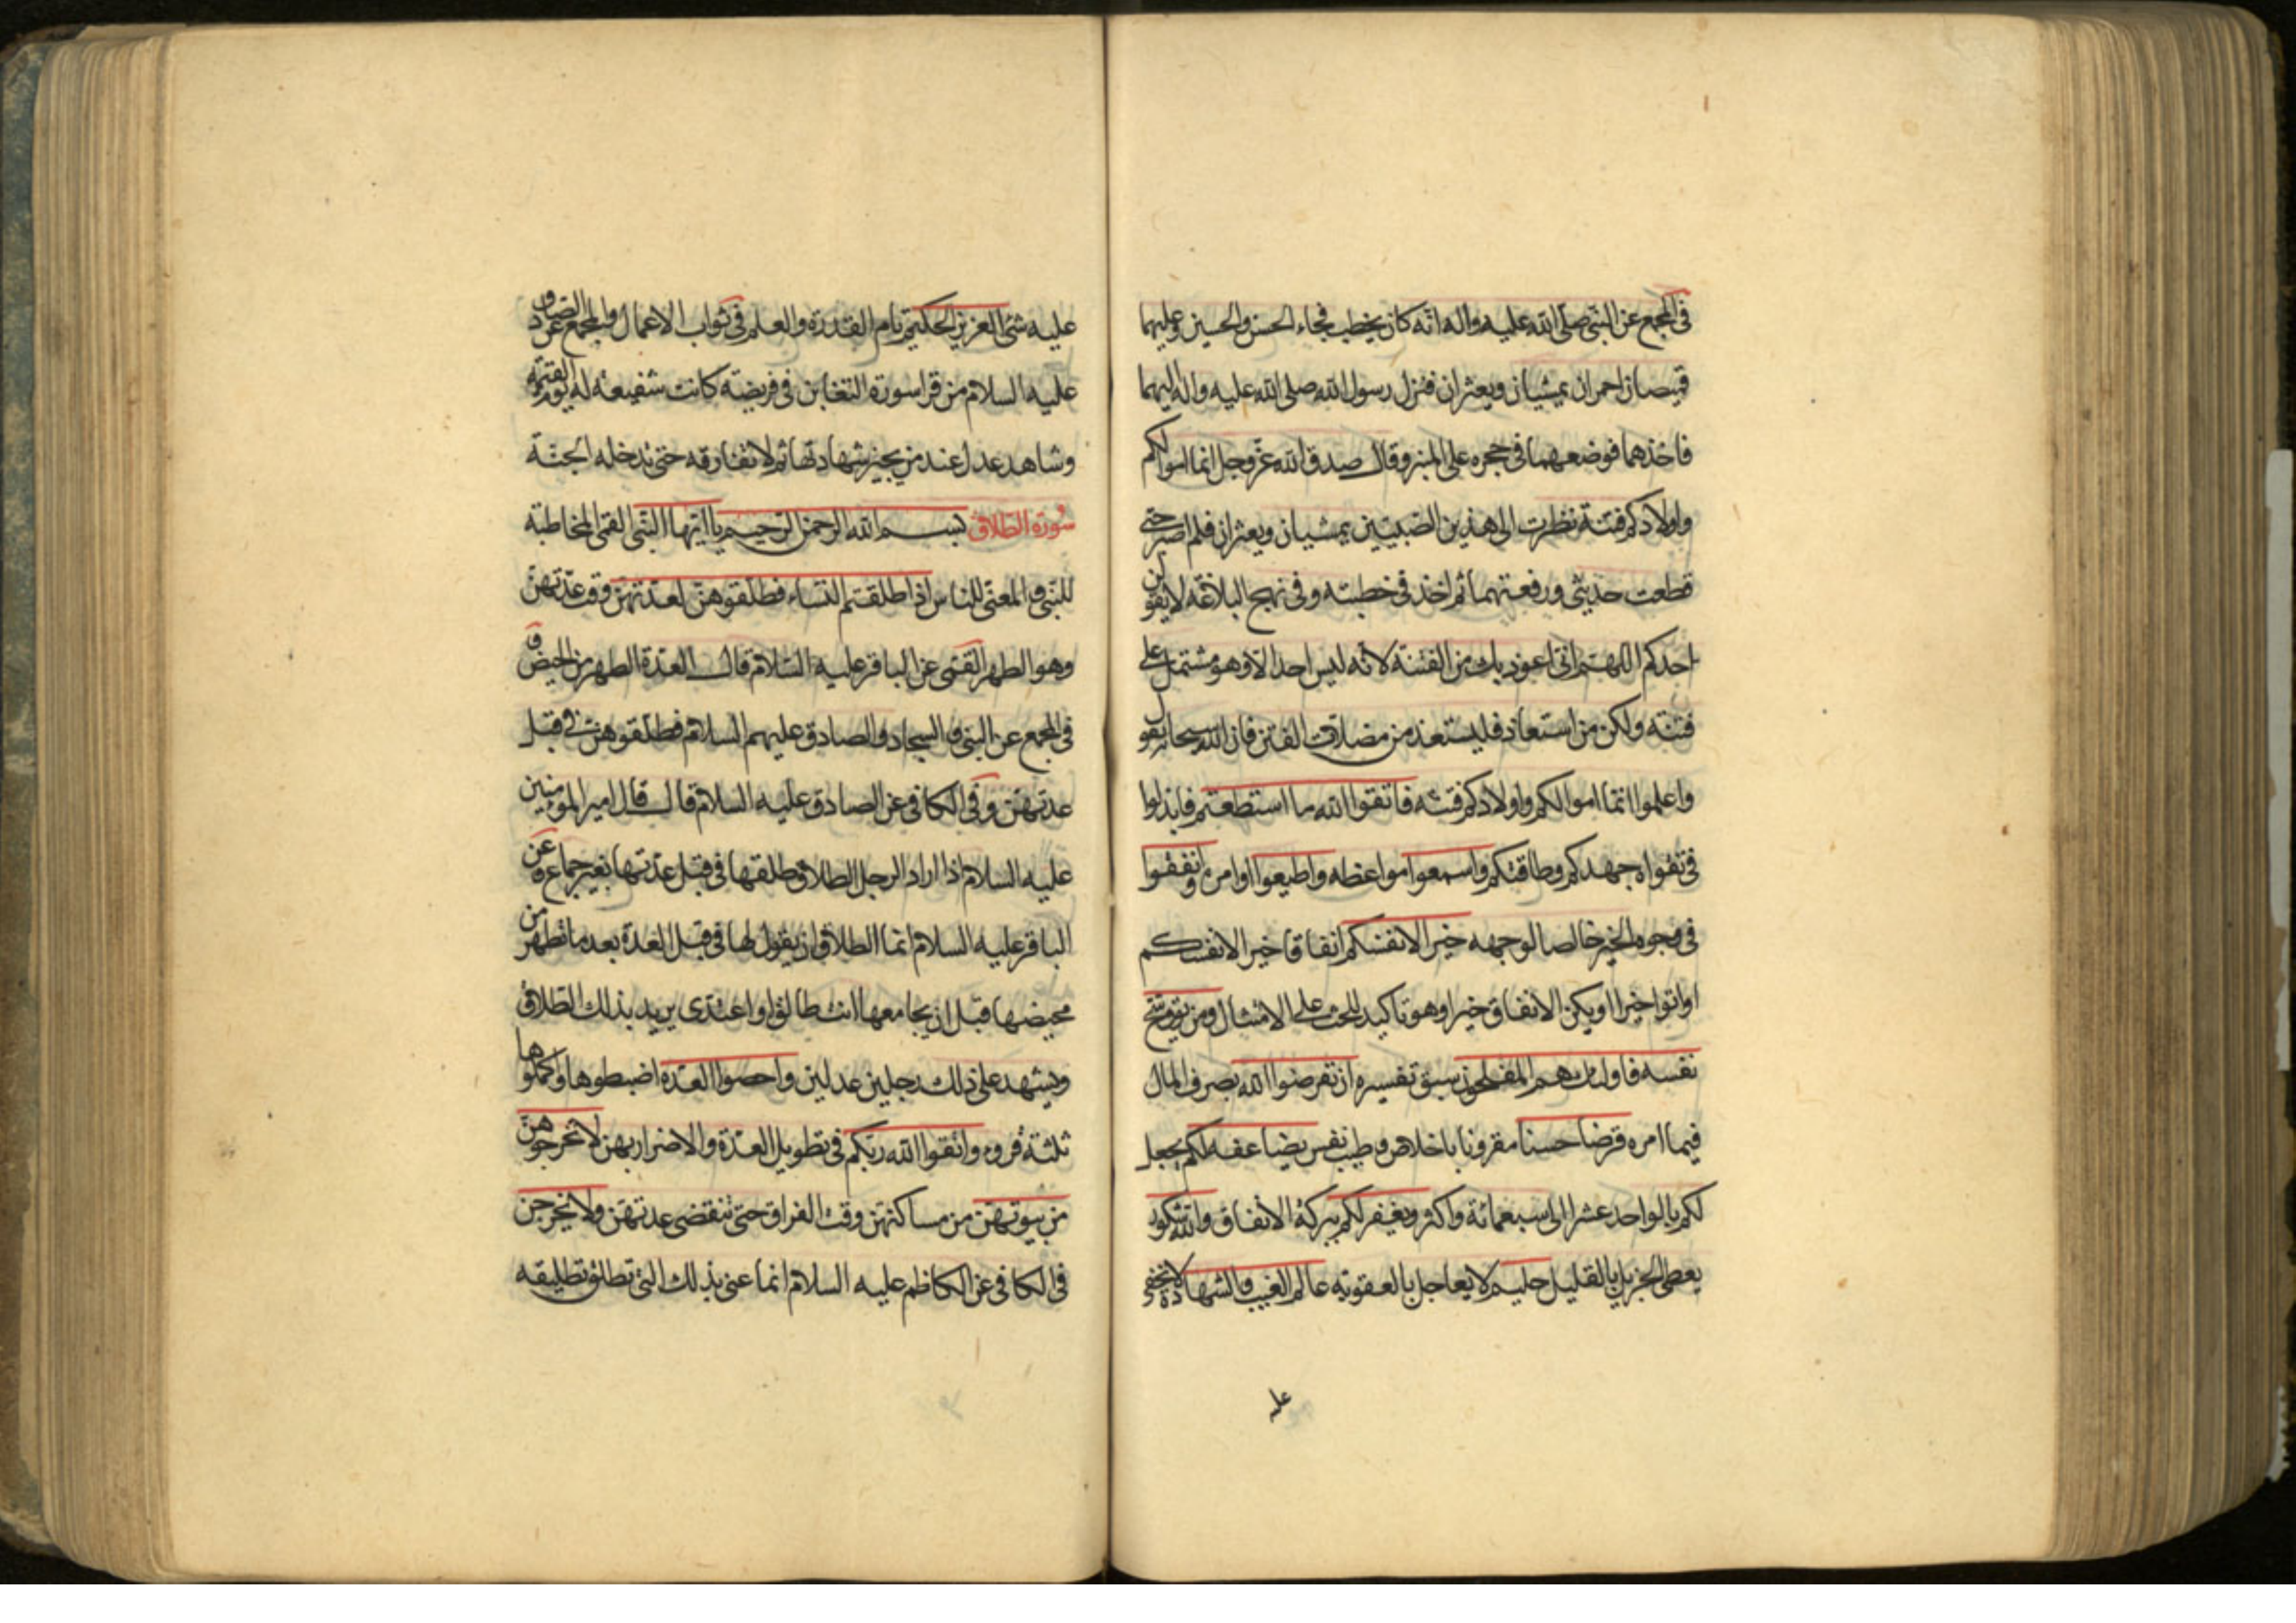 في المجمع عن النبي صلى الله عليه واله انه كان يخطب فجاء الحسن والحسين وعليهما
قميصان احمران يمشيان ويعثران فنزل رسول الله صلى الله عليه واله اليهما
فاخذهما فوضعهما في حجره على المنبر وقال صدق الله عز وجل انما اموالكم
واولادكم فتنة نظرت الى هذين الصبيين يمشيان ويعثران فلم اصبر حتى
قطعت حديثي ورفعتهما ثم اخذ في خطبته وفي نهج البلاغه لا يقولن
احدكم اللهم اني اعوذ بك من الفتنة لانه ليس احد الا وهو مشتمل على
فتنته ولكن من استعاذ فليستعذ من مضلات الفتن فان الله سبحانه يقول
واعلموا انما اموالكم واولادكم فتنه فاتقوا الله ما استطعتم فابذلوا
في تقواه جهدكم وطاقتكم واسمعوا مواعظه واطيعوا اوامره وانفقوا
في وجوه الخير خالصا لوجهه خيرا لانفسكم انفاقا خيرا لانفسكم
اواتوا خيرا او يكن الانفاق خيرا وهو تاكيد للحث على الامتثال ومن يوق شح
نفسه فاولئك هم المفلحون سبق تفسيره ان تقرضوا الله بصرف المال
فيما امره قرضا حسنا مقرونا باخلاص وطيب نفس يضاعفه لكم يجعل
لكم بالواحد عشرا الى سبعمائة واكثر ويغفر لكم ببركة الانفاق والله شكور
يعطي الجزيل بالقليل حليم لا يعاجل بالعقوبه عالم الغيب والشهادة لا يخفى
عليه
عليه شئ العزيز الحكيم تام القدرة والعلم في ثواب الاعمال والمجمع عن الصادق
عليه السلام من قرا سورة التغابن في فريضته كانت شفيعه له يوم القيمه
وشاهد عدل عند من يجيز شهادتها ثم لا تفارقه حتى تدخله الجنة
سورة الطلاق بسم الله الرحمن الرحيم يا ايها النبي القمي المخاطبة
للنبي ص والمعنى للناس اذا طلقتم النساء فطلقوهن لعدتهن وقت عدتهن
وهو الطهر القمي عن الباقر عليه السلام قال العدة الطهر من الحيض و
في المجمع عن النبي ص والسجاد والصادق عليهم السلام فطلقوهن في قبل
عدتهن وفي الكافي عن الصادق عليه السلام قال قال امير المؤمنين
عليه السلام اذا اراد الرجل الطلاق طلقها في قبل عدتها بغير جماع وعن
الباقر عليه السلام انما الطلاق ان يقول لها في قبل العدة بعد ما تطهر من
محيضها قبل ان يجامعها انت طالق او اعتدى يريد بذلك الطلاق
ويشهد على ذلك رجلين عدلين واحصوا العده اضبطوها واكملوها
ثلثة قروء واتقوا الله ربكم في تطويل العدة والاضرار بهن لا تخرجوهن
من بيوتهن من مساكنهن وقت الفراق حتى تنقضى عدتهن ولا يخرجن
في الكافي عن الكاظم عليه السلام انما عنى بذلك التي تطلق تطليقه